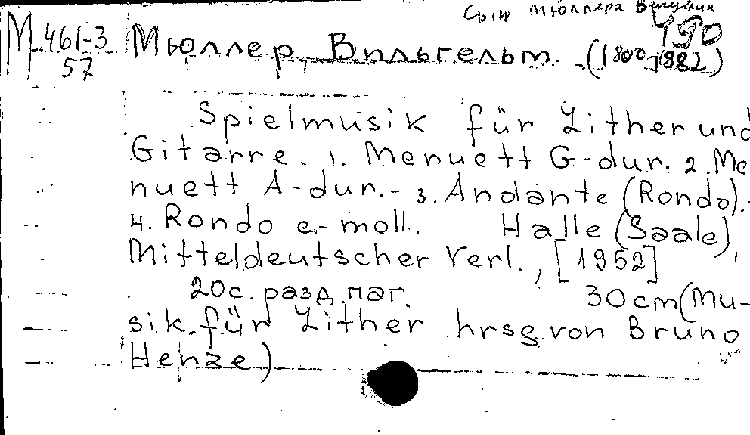 Сын Мюллера
М 461-3 57
190
Мюллер, Вильгельм. (1800-1882)
Spielmusik für Zither und
Gitarre. 1. Menuett G-dur. 2. Me-
nuett A-dur.- 3. Andante (Rondo).-
4. Rondo e-moll. Halle (Saale),
Mitteldeutscher Verl., [1952]
20с. разд. паг. 30cm (Mu-
sik für Zither hrsg. von Bruno
Henze)